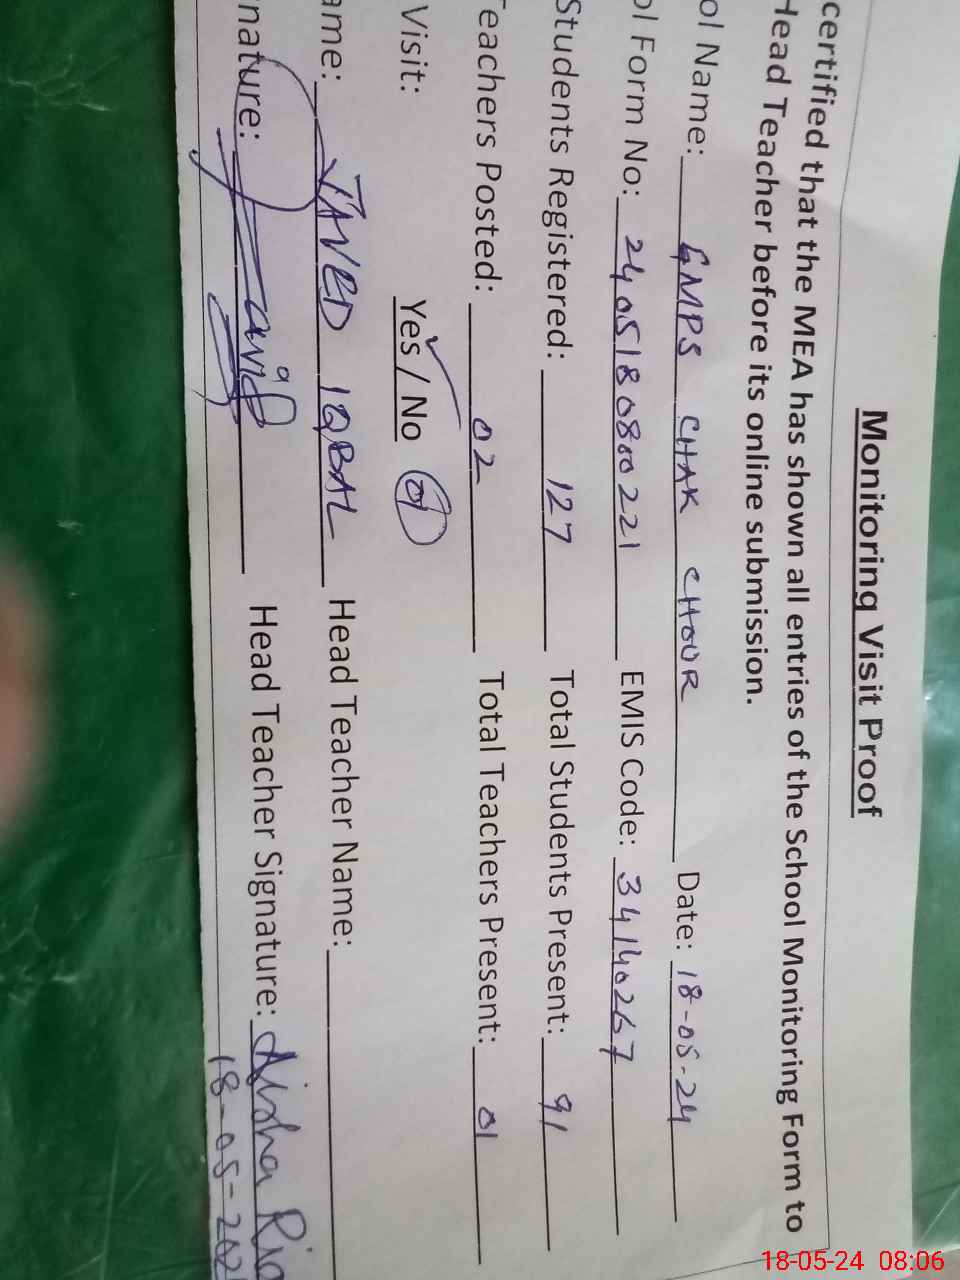 Monitoring Visit Proof
certified that the MEA has shown all entries of the School Monitoring Form to
Head Teacher before its online submission.
ol Name: GMPS CHAK CHOOR Date: 18-05-24
ol Form No: 2405180800221 EMIS Code: 34140267
Students Registered: 127 Total Students Present: 91
Teachers Posted: 02 Total Teachers Present: 01
Visit: Yes / No 01
ame: JAVED IQBAL Head Teacher Name:
nature: Javid Head Teacher Signature: Aisha
18-05-202
18-05-24 08:06